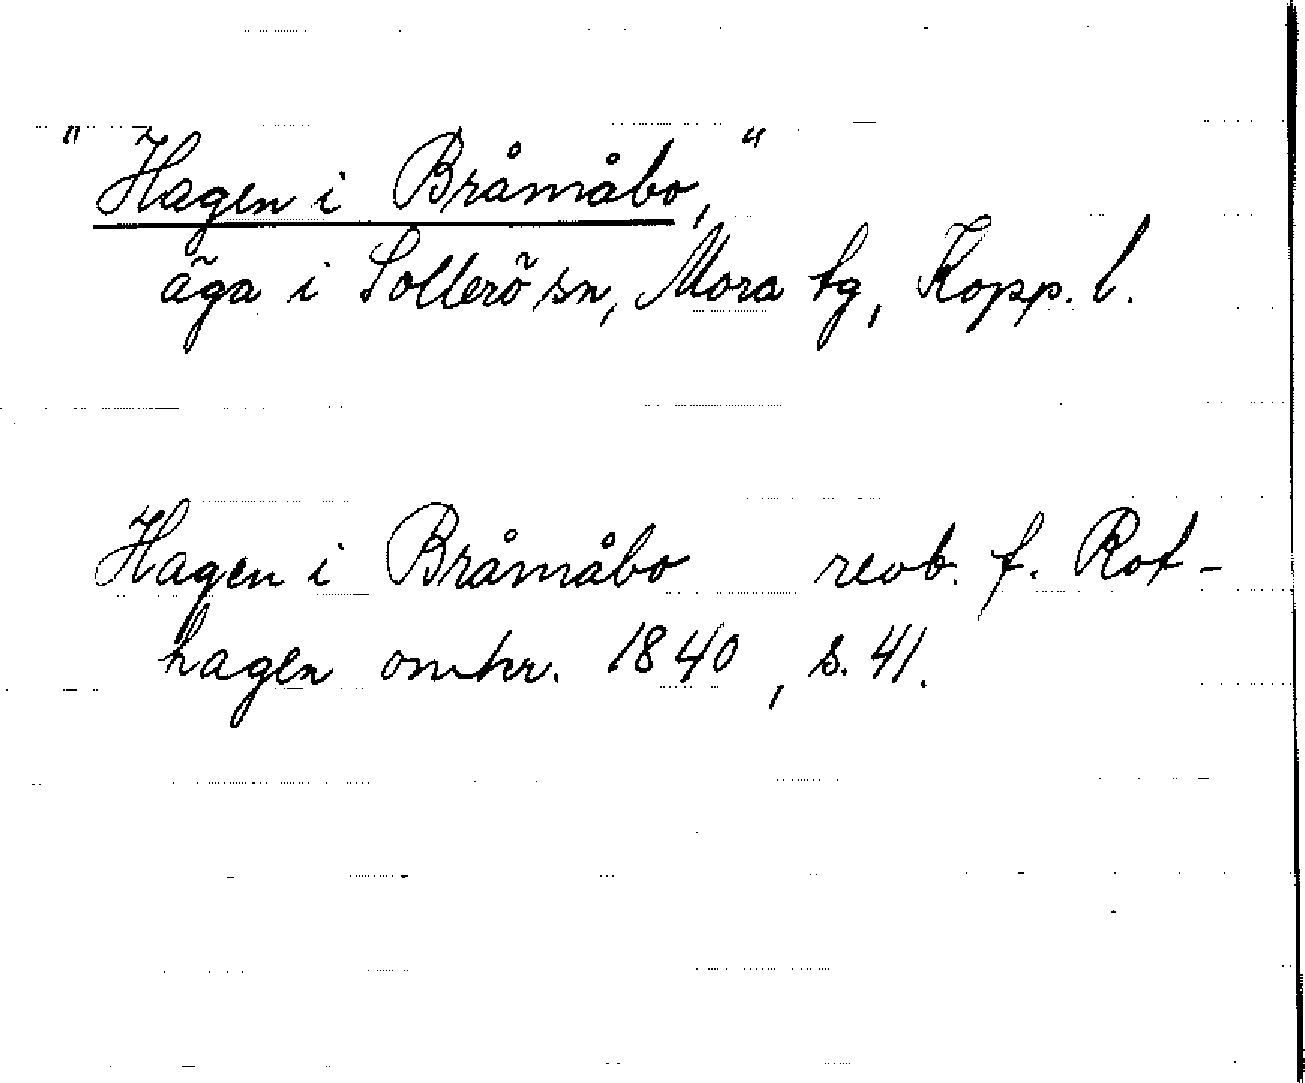 "Hagen i Bråmåbo,"
äga i Sollerö sn, Mora tg, Kopp. l.
Hagen i Bråmåbo revb. f. Rot-
hagen omkr. 1840, s. 41.